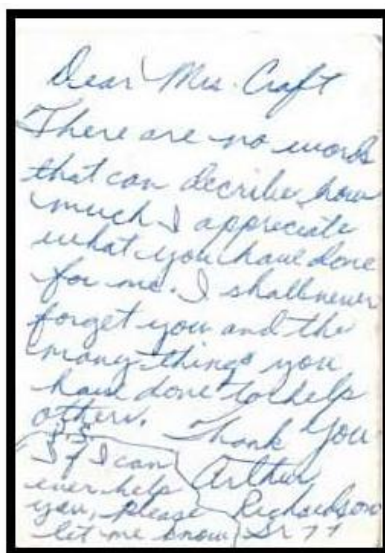 Dear Mrs. Craft
There are no words
that can decribe how
much I appreciate
what you have done
for me. I shall never
forget you and the
many things you
have done to help
others. Thank You
P.S.
If I can
ever help
you, please
let me know
Arthur
Richardson
Sr 77